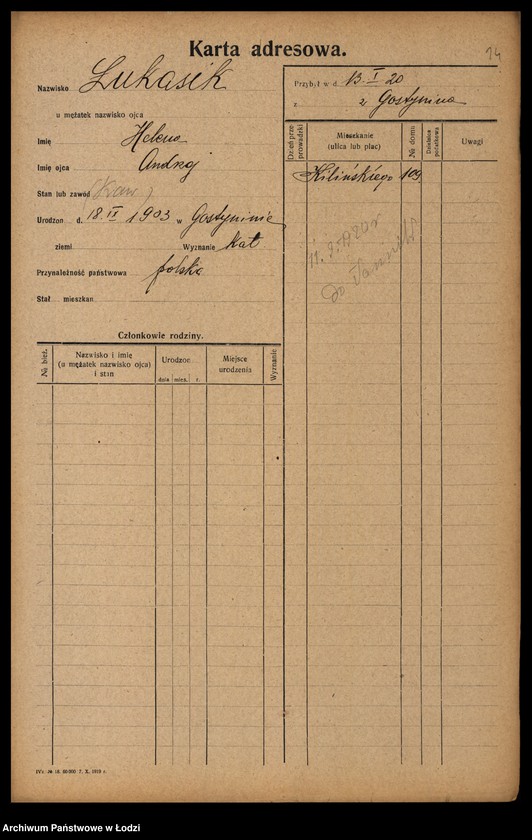 Karta adresowa.
24
Nazwisko Łukasik
u mężatek nazwisko ojca
Imię Helena
Imię ojca Andrzej
Stan lub zawód
Urodzon d. 18.IX 1903 w Gostyninie
ziemi Wyznanie kat
Przynależność państwowa polska
Stał mieszkan
Członkowie rodziny.
№ bież.
Nazwisko i imię
(a mężatek nazwisko ojca)
i stan
Urodzon
dnia mies. r.
Miejsce
urodzenia
Wyznanie
Przybył w d. 13 I 20
z z Gostynina
Dzień prze-
prowadzki
Mieszkanie
(ulica lub plac)
№ domu
Dzielnica
podatkowa
Uwagi
Kilińskiego 109
11.3.1920r
do
Archiwum Państwowe w Łodzi